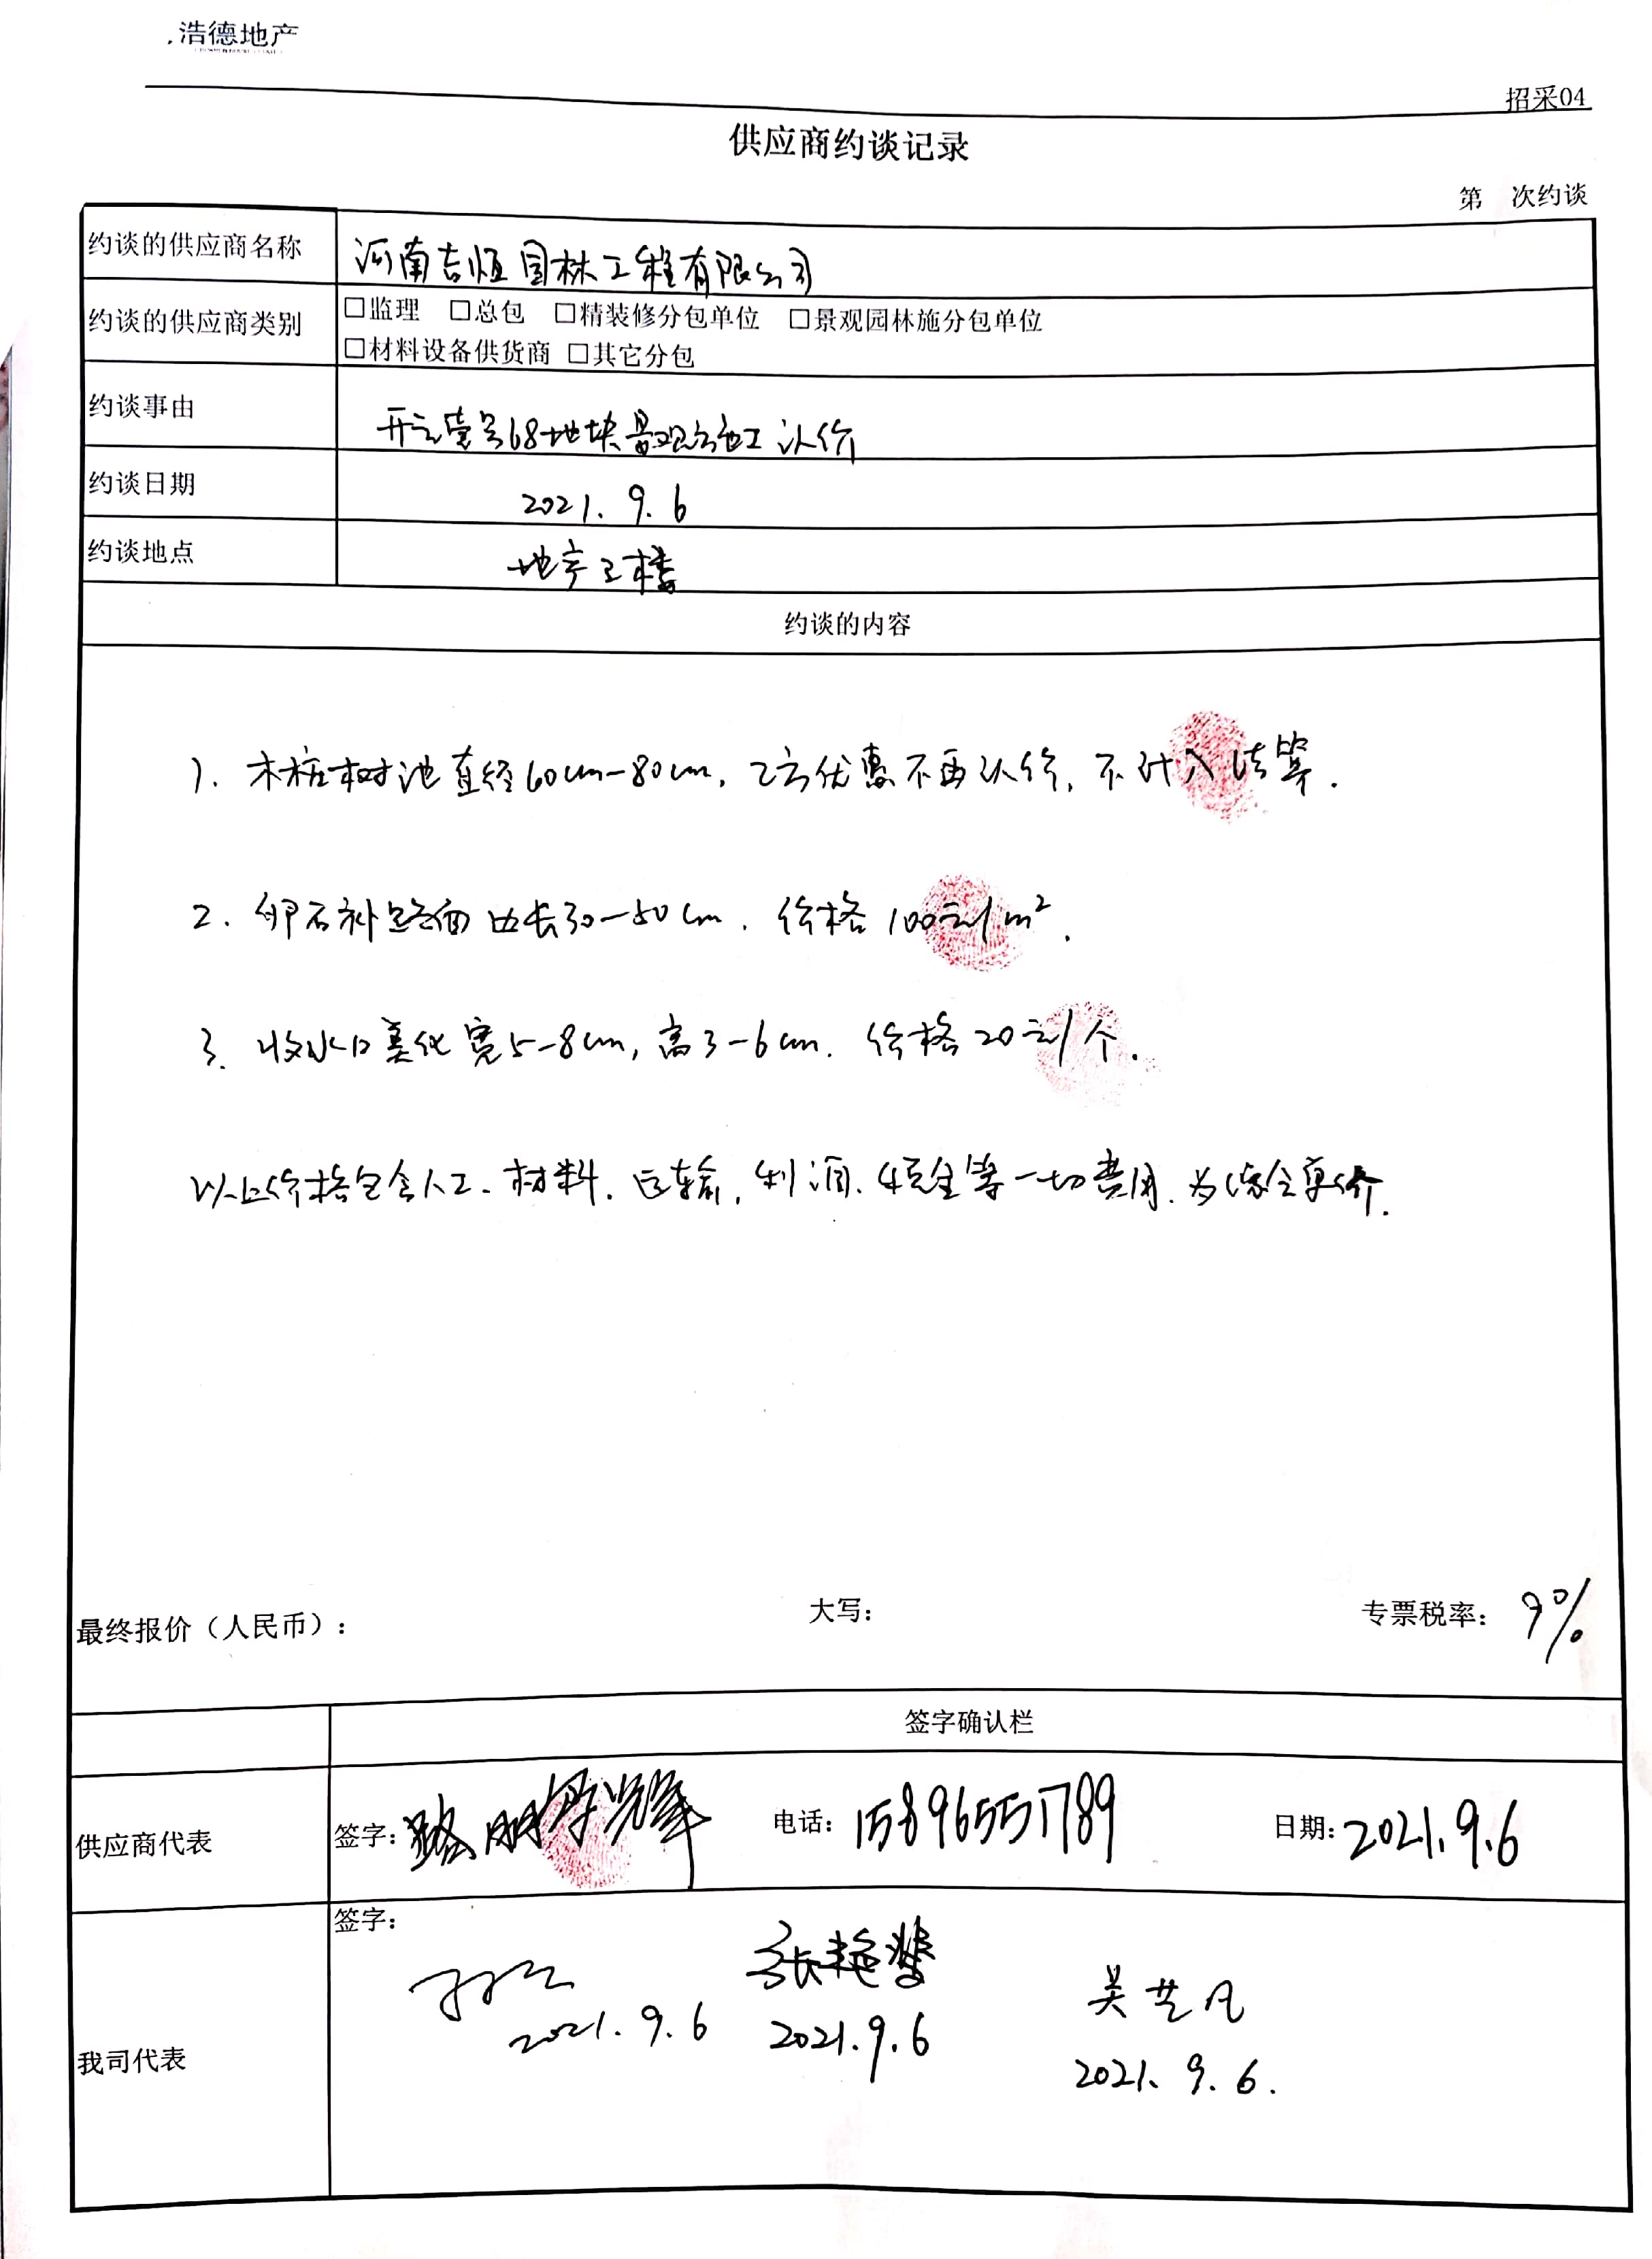 浩德地产
招采04
供应商约谈记录
第 次约谈
约谈的供应商名称 河南吉恒园林工程有限公司
约谈的供应商类别 □监理 □总包 □精装修分包单位 □景观园林施分包单位
□材料设备供货商 □其它分包
约谈事由 开元壹号68地块景观施工认价
约谈日期 2021.9.6
约谈地点 地产三楼
约谈的内容
1. 木桩树池直径60cm-80cm, 乙方优惠不再认价, 不计入结算.
2. 卵石补路面 边长30-50cm. 价格100元/m².
3. 收水口美化宽5-8cm, 高3-6cm. 价格20元/个.
以上价格包含人工、材料、运输, 利润、税金等一切费用. 为综合单价.
最终报价（人民币）： 大写： 专票税率： 9%
签字确认栏
供应商代表 签字： 电话：15896551789 日期：2021.9.6
我司代表 签字：
张艳 吴艺凡
2021.9.6 2021.9.6 2021.9.6.